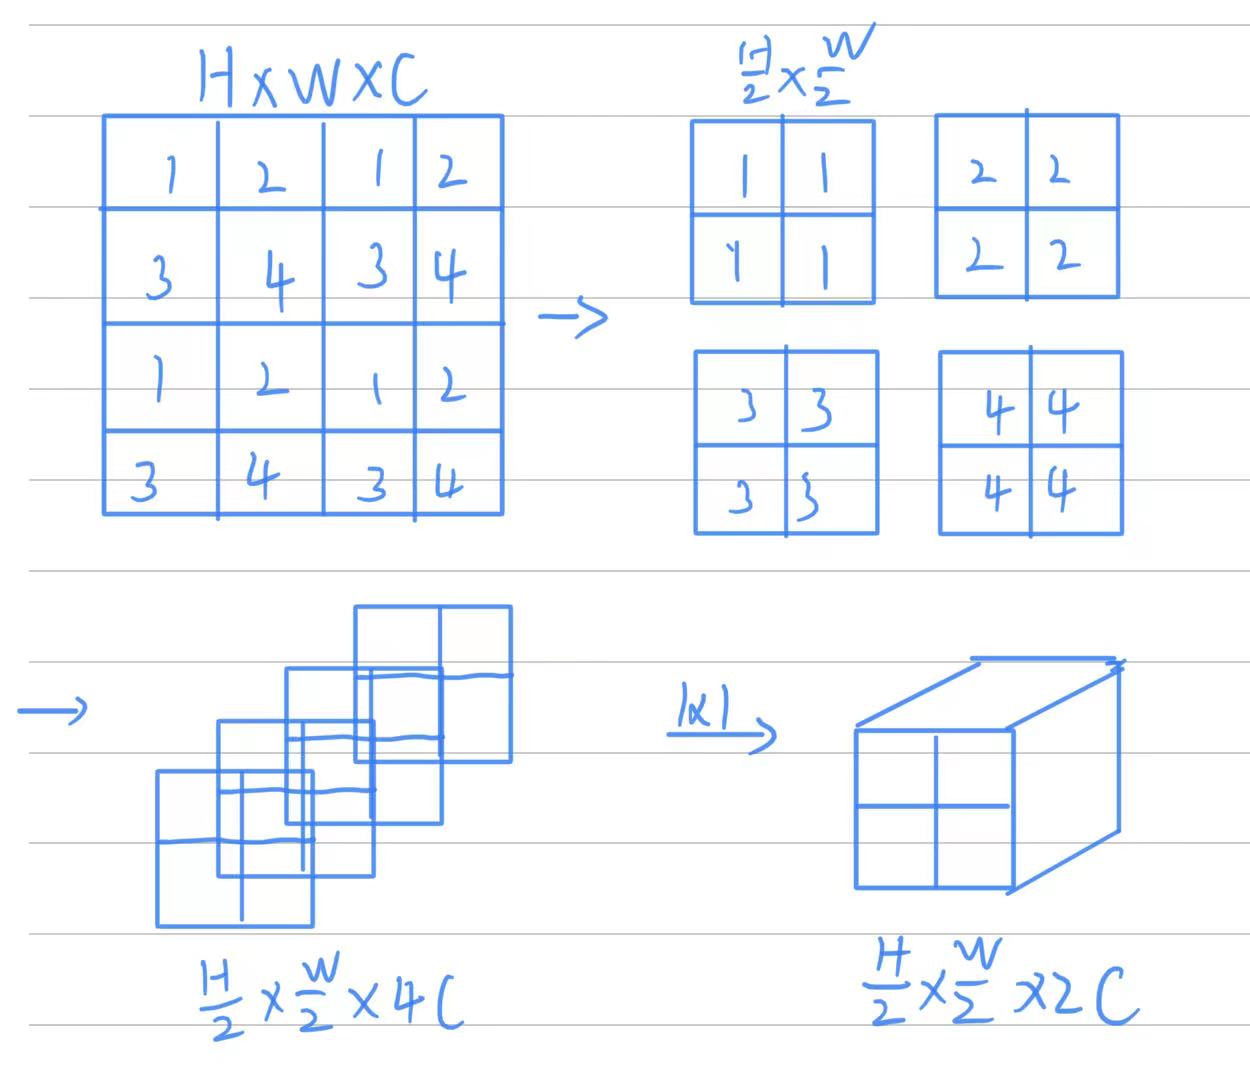 H×W×C
1 2 1 2
3 4 3 4
1 2 1 2
3 4 3 4
→
H/2 × W/2
1 1
1 1
2 2
2 2
3 3
3 3
4 4
4 4
→
H/2 × W/2 × 4C
1×1
→
H/2 × W/2 × 2C